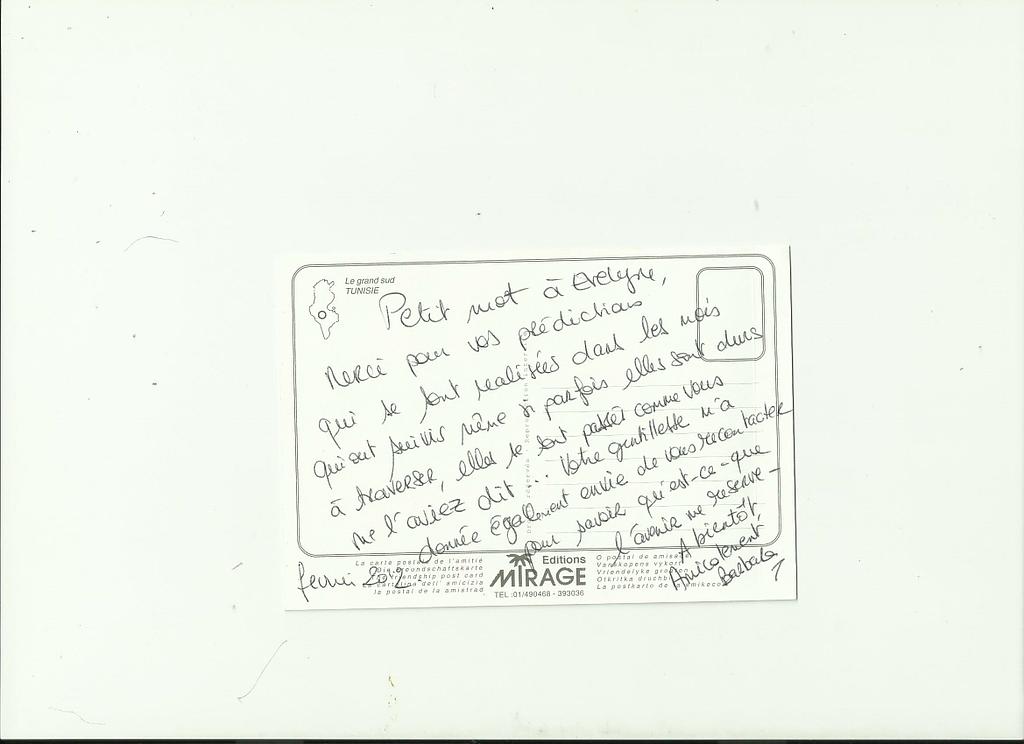 Le grand sud
TUNISIE
Petit mot à Evelyne,
Merci pour vos prédictions
qui se sont realisées dans les mois
qui ont suivis même si parfois elles sont dures
à traverser, elles se sont passées comme vous
me l'aviez dit... Votre gentillesse m'a
donnée également envie de vous recontacter
pour savoir qu'est-ce-que
l'avenir me réserve-
A bientôt,
Amicalement
Barbara
fevrier
La carte postale de l'amitié
Die freundschaftskarte
Friendship post card
Cartolina dell' amicizia
la postal de la amistrad
Editions
MIRAGE
TEL :01/490468 - 393036
O postal de
Vanskopens vykort
Vriendelyke
Otkritka
La postkarto de